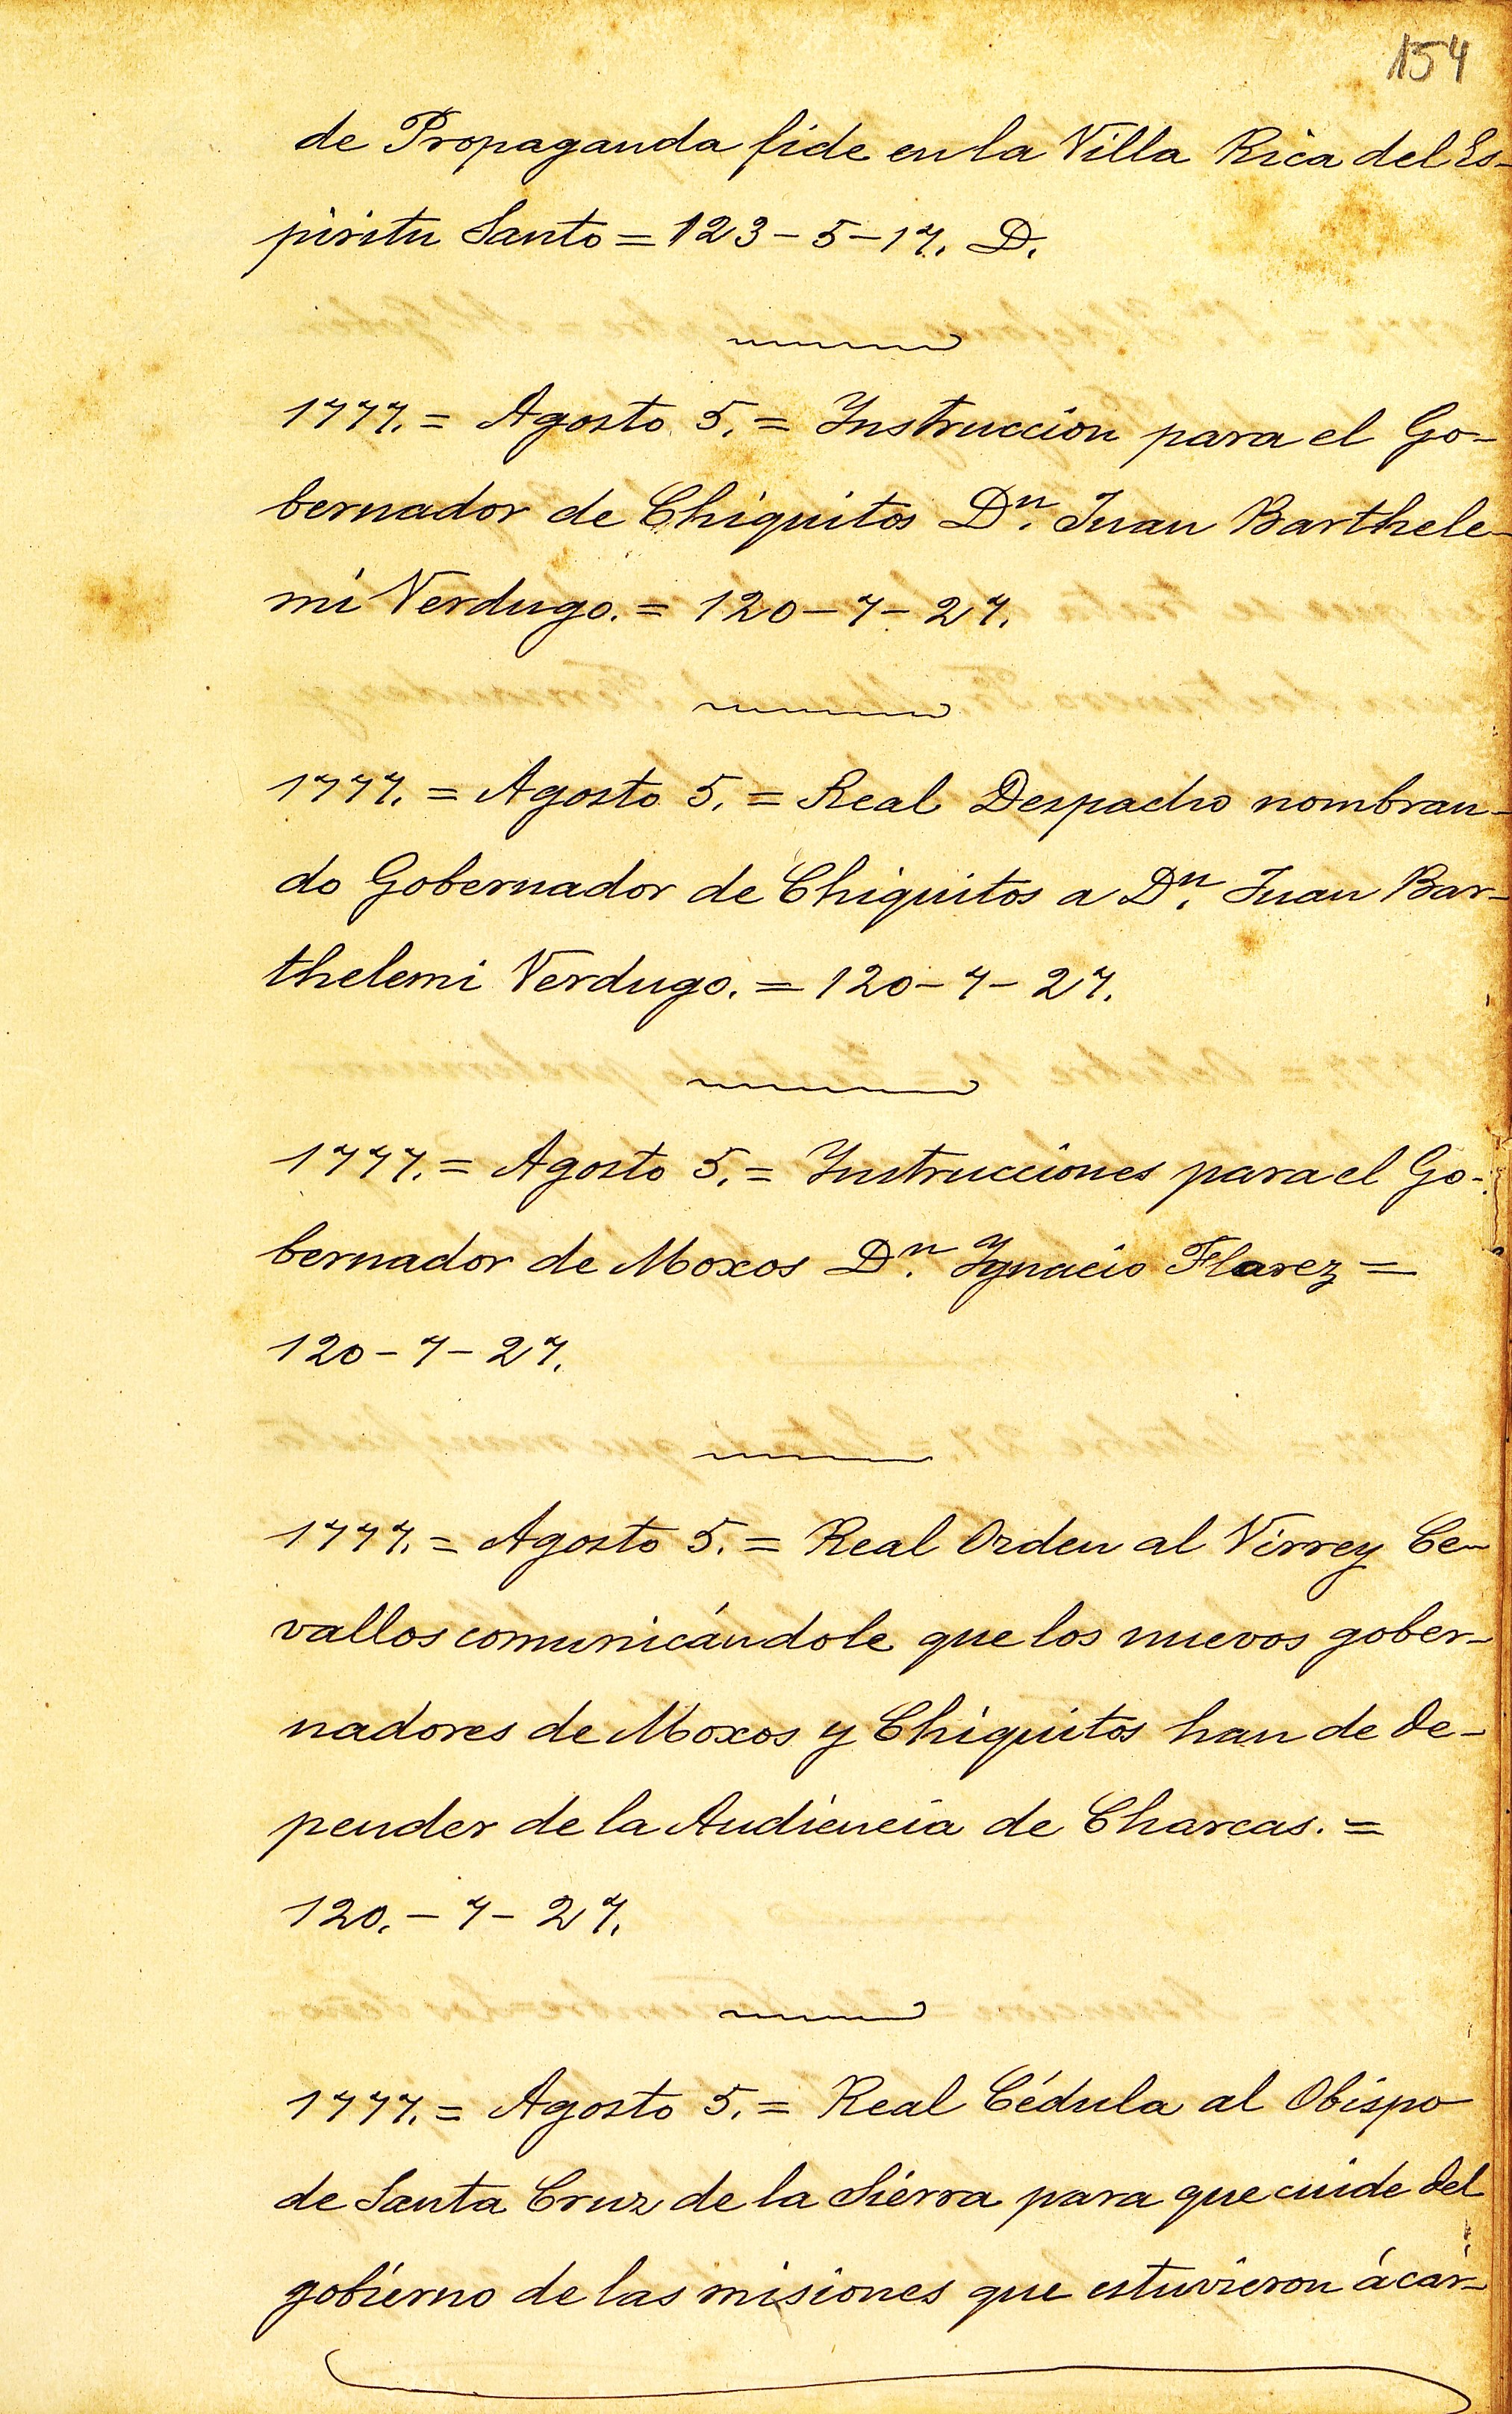 154
de Propaganda fide en la Villa Rica del Es-
piritu Santo = 123 - 5 - 17. D.
1777. = Agosto 5. = Instruccion para el Go-
bernador de Chiquitos Dn. Juan Barthele-
mi Verdugo. = 120 - 7 - 27.
1777. = Agosto 5. = Real Despacho nombran-
do Gobernador de Chiquitos a Dn. Juan Bar-
thelemi Verdugo. = 120 - 7 - 27.
1777. = Agosto 5. = Instrucciones para el Go-
bernador de Moxos Dn. Ignacio Flarez =
120 - 7 - 27.
1777. = Agosto 5. = Real Orden al Virrey Ce-
vallos comunicándole que los nuevos gober-
nadores de Moxos y Chiquitos han de de-
pender de la Audiencia de Charcas. =
120. - 7 - 27.
1777. = Agosto 5. = Real Cédula al Obispo
de Santa Cruz de la Sierra para que cuide del
gobierno de las misiones que estuvieron á cár-